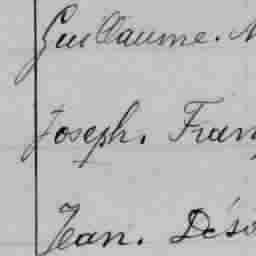 Guillaume. N
Joseph. Fran
Jean. Dés